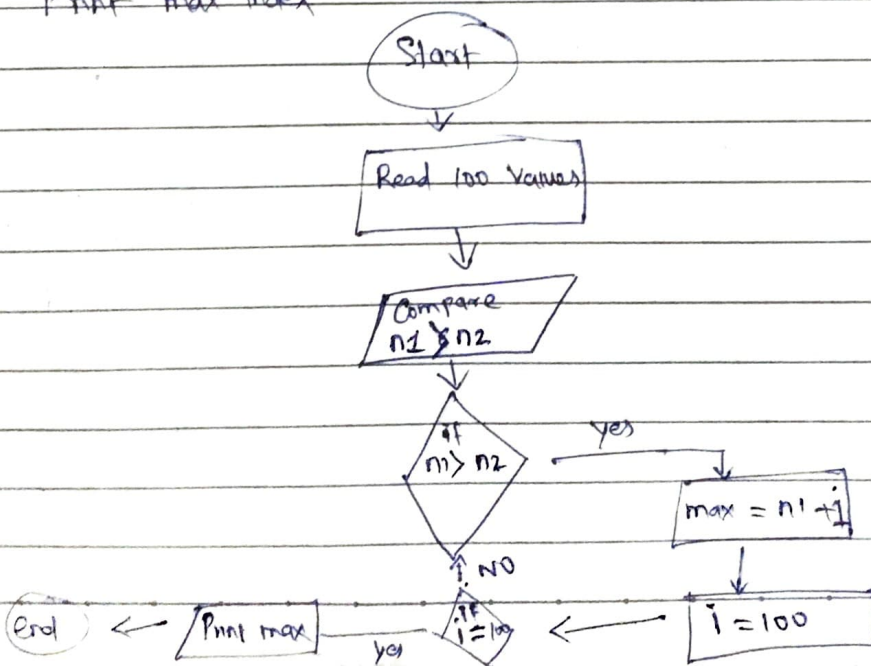 Print max index
Start
Read 100 Values
Compare
n1 > n2
if
n1 > n2
yes
max = n1 + i
NO
i = 100
if
i = 100
yes
Print max
end